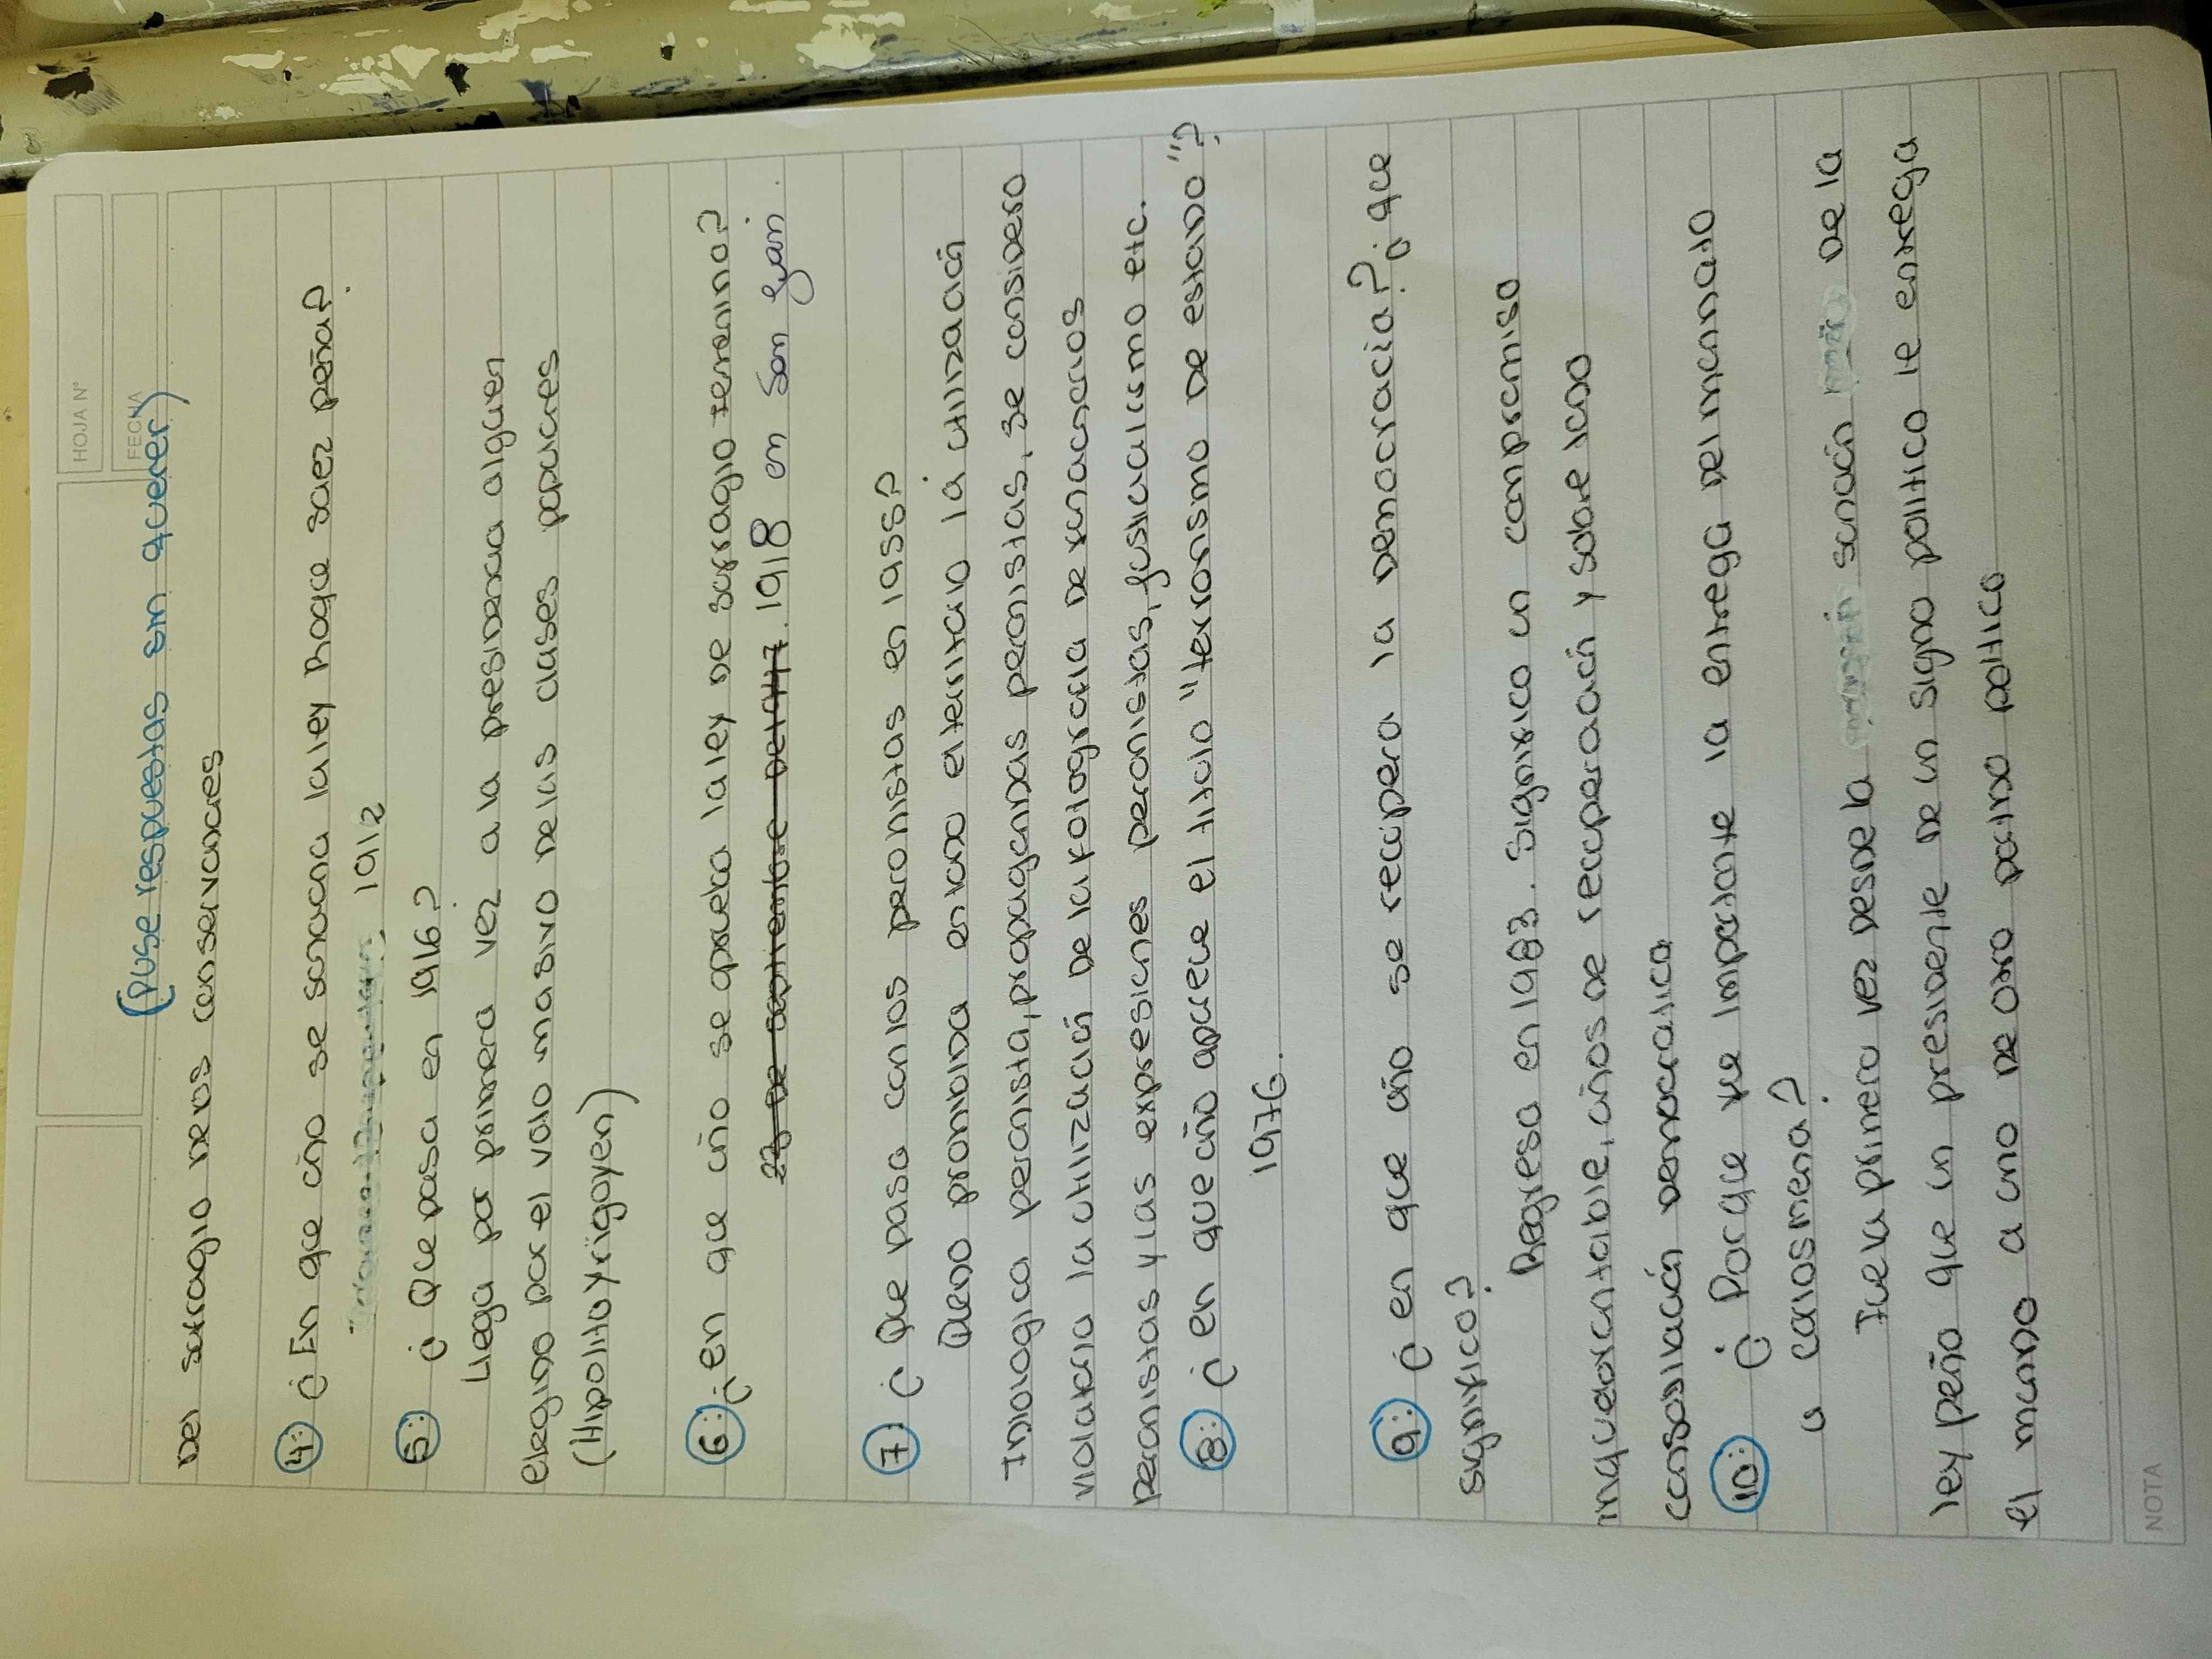 HOJA N°
FECHA
(puse respuestas sin querer)
Del sufragio de los conservadores
4: ¿En que año se sanciona la ley Roque saez peña?
1912
5: ¿Que pasa en 1916?
Llega por primera vez a la presidencia alguien
elegido por el voto masivo de las clases populares
(Hipolito Yrigoyen)
6: ¿en que año se aprueba la ley de sufragio femenino?
23 De septiembre Del 1947. 1918 en San Juan.
7: ¿Que pasa con los peronistas en 1955?
Quedo prohibida en todo el territorio la utilización
Ideologica peronista, propagandas peronistas, se considero
violatoria la utilización de la fotografia de funcionarios
peronistas y las expresiones peronistas, justicialismo etc.
8: ¿en que año aparece el titulo "terrorismo de estado"?
1976.
9: ¿en que año se recupera la democracia? ¿que
significo?
Regresa en 1983. Significo un compromiso
inquebrantable, años de recuperación y sobre todo
consolidación democratica
10: ¿Por que fue importante la entrega del mandato
a Carlos menem?
Fue la primera vez desde la sanción De la
ley peña que un presidente de un signo politico le entrega
el mando a uno de otro partido politico
NOTA